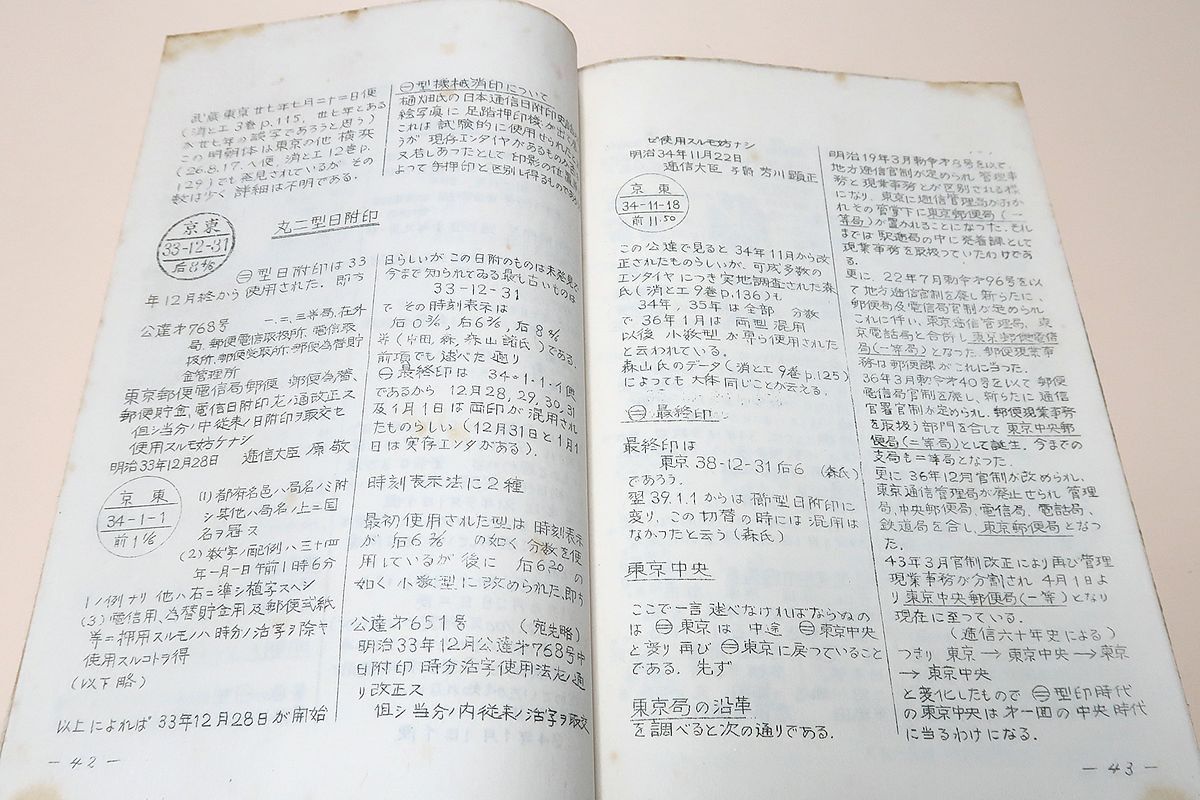 武蔵東京廿七年七月二十二日便
(消とエ3巻p.115, 廿七年とある
へ廿七年の誤写であろうと思う)
この明朝体は東京の他 横浜
(26.8.17 へ便, 消とエ12巻p.
129)でも発見されているが その
数は少く 詳細は不明である.
㊁型機械消印について
樋畑氏の日本通信日附印史
絵写真に 足踏押印機が出
これは 試験的に使用せられた
うが 現存エンタイヤがあるもの
又若しあったとして 印影の位置
よって手押印と区別し得るものであ
丸二型日附印
京東
33-12-31
后8
㊁型日附印は33
年12月終から使用された. 即ち
公達才768号
一,二,三等局,在外
局,郵便電信取扱所,電信取
扱所,郵便受取所,郵便為替貯
金管理所
東京郵便電信局郵便 郵便為替,
郵便貯金,電信日附印左ノ通改正ス
但シ当分ノ中従来ノ日附印ヲ取交セ
使用スルモ妨ケナシ
明治33年12月28日 逓信大臣 原 敬
京東
34-1-1
前1
(1) 都府名邑ハ局名ノミ附
シ其他ハ局名ノ上ニ国
名ヲ冠ス
(2) 数字ノ配例ハ三十四
年一月一日午前1時6分
ノ例ナリ 他ハ右ニ準シ植字スヘシ
(3) 電信用、為替貯金用及郵便式紙
等ニ押用スルモノハ時分ノ活字ヲ除キ
使用スルコトヲ得
(以下略)
以上によれば 33年12月28日が開始
日らしいがこの日附のものは未発見で
今まで知られてゐる最も古いものは
33-12-31
で その時刻表示は
等(片田,森,森山諸氏)である.
前項でも述べた通り
㊀最終印は 34・1・1・イ便
であるから 12月28,29,30,31
及1月1日は両印が混用され
たものらしい (12月31日と1月1
日は実存エンタがある).
時刻表示法に2種
最初使用された型は 時刻表示
が の如く 分数を使
用しているが 後に 后6.20 の
如く 小数型に改められた,即ち
公達才651号 (宛先略)
明治33年12月公達才768号中
日附印 時分活字使用法左ノ通
リ改正ス
但シ当分ノ内従来ノ活字ヲ取交
− 42 −
ゼ使用スルモ妨ナシ
明治34年11月22日
逓信大臣 子爵 芳川 顕正
京東
34-11-18
前11.50
この公達で見ると 34年11月から改
正されたものらしいが, 可成多数の
エンタイヤにつき 実地調査された森
氏(消とエ9巻p.136)も
34年, 35年は全部 分数
で 36年1月は 両型混用
以後 小数型が 専ら使用された
と云われている.
森山氏のデータ(消とエ9巻p.125)
によっても 大体 同じことが云える.
㊁ 最終印
最終印は
東京 38-12-31 后6 (森氏)
であろう.
翌39.1.1からは 櫛型日附印に
変り, この切替の時には 混用は
なかったと云う(森氏)
東京中央
ここで一言 述べなければならぬの
は ㊁東京は 中途 ㊁東京中央
と変り再び ㊁東京に戻っていること
である. 先ず
東京局の沿革
を調べると次の通りである.
明治19年3月勅令才8号を以て,
地方逓信官制が定められ 管理事
務と現業事務とが 区別される様
になり, 東京に逓信管理局がおか
れその管掌下に東京郵便局(一
等局)が置かれることになった.それ
までは駅逓局の中に発着課として
現業事務を取扱っていたわけであ
る.
更に, 22年7月勅令才96号を以
て地方逓信官制を廃し新らたに,
郵便及電信局官制が定められ
これに伴い, 東京逓信管理局, 東
京電話局と合併し 東京郵便電信
局(一等局)となった.郵便現業事
務は郵便課がこれに当った.
36年3月勅令才40号を以て 郵便
電信局官制を廃し,新らたに 通信
官署官制が定められ, 郵便現業事務
を取扱う部門を合して 東京中央郵
便局(二等局)として誕生. 今までの
支局も二等局となった.
更に 36年12月 官制が改められ,
東京逓信管理局が廃止せられ 管理
局,中央郵便局,電信局,電話局,
鉄道局を合し,東京郵便局となっ
た.
43年3月官制改正により再び管理
現業事務が分割され 4月1日よ
り 東京中央郵便局(一等)となり
現在に至っている.
(逓信六十年史による)
つまり 東京 → 東京中央 → 東京
→ 東京中央
と変化したもので ㊁型印時代
の東京中央は 才一回の 中央時代
に当るわけになる.
− 43 −